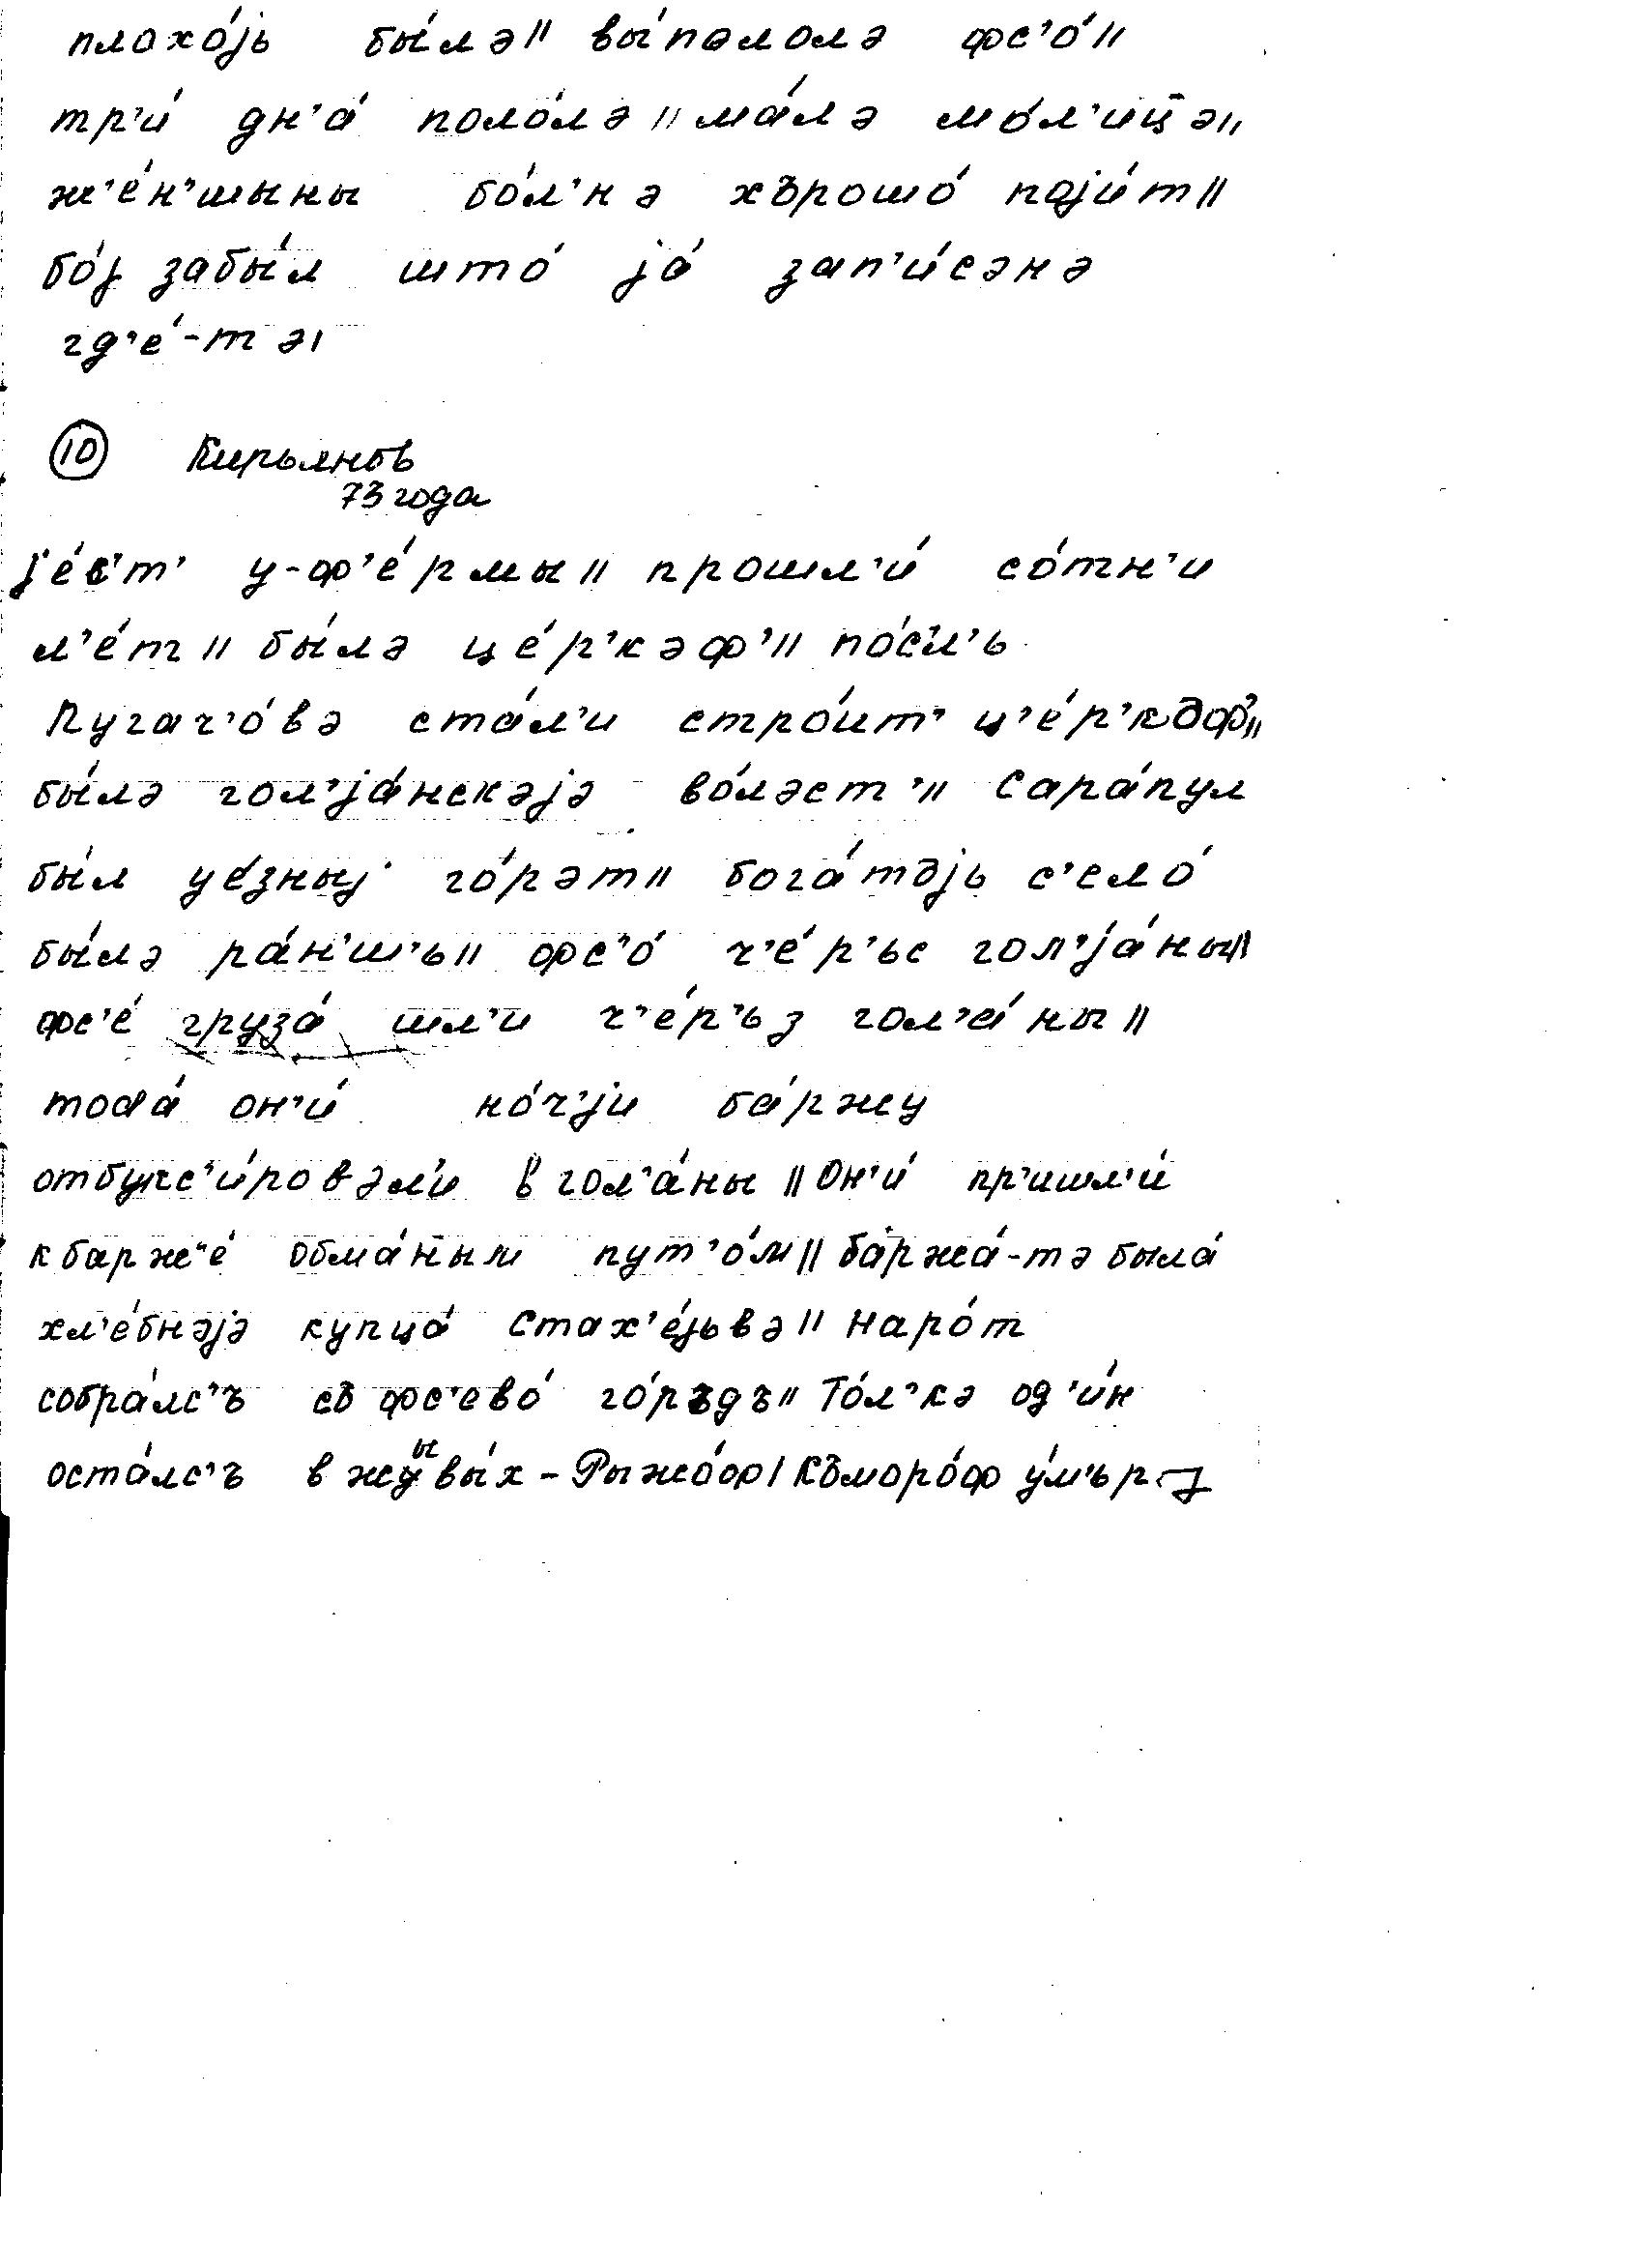 плохо́јь бы́лə|| вы́пəлолə фс’о́||
тр’и́ дн’а́ поло́лə || ма́лə мо́л’иц̄ə||
ж’е́н’шыны бо́л’нə хъ̀рошо́ појит́||
бо́г забы́л што́ ја́ зап’и́сəнə
гд’е́-тə|
⑩ Кирьянов
73 года
је́с’т’ у-ф’е́рмы|| прошл’и́ со́тн’и
л’е́т|| бы́лə це́р’кəф’|| по́сл’ь
Пугач’о́вə ста́л’и стро́ит’ ц’е́р’кəф’||
бы́лə гол’ја́нскəјə во́лəст’|| Сара́пул
бы́л уе́зныј го́рəт|| бога́тəјь с’ело́
бы́лə ра́н’ш’ь|| фс’о́ ч’е́р’ьс гол’ја́ны||
фс’е́ груза́ шл’и ч’е́р’ьз гол’а́ны||
тода́ он’и́ но́ч’ји ба́ржу
отбукс’и́ровəл’и в гол’а́ны || Он’и́ пр’ишл’и́
к барж’е́ обма́ным пут’о́м|| баржа́-тə была́
хл’е́бнəјə купца́ Стах’е́јьвə|| Наро́т
собра́лс’ъ съ фс’ево́ го́ръдъ|| То́л’кə од’и́н
оста́лс’ъ в жывы́х – Рыжо́ф| Къморо́ф у́м’ър